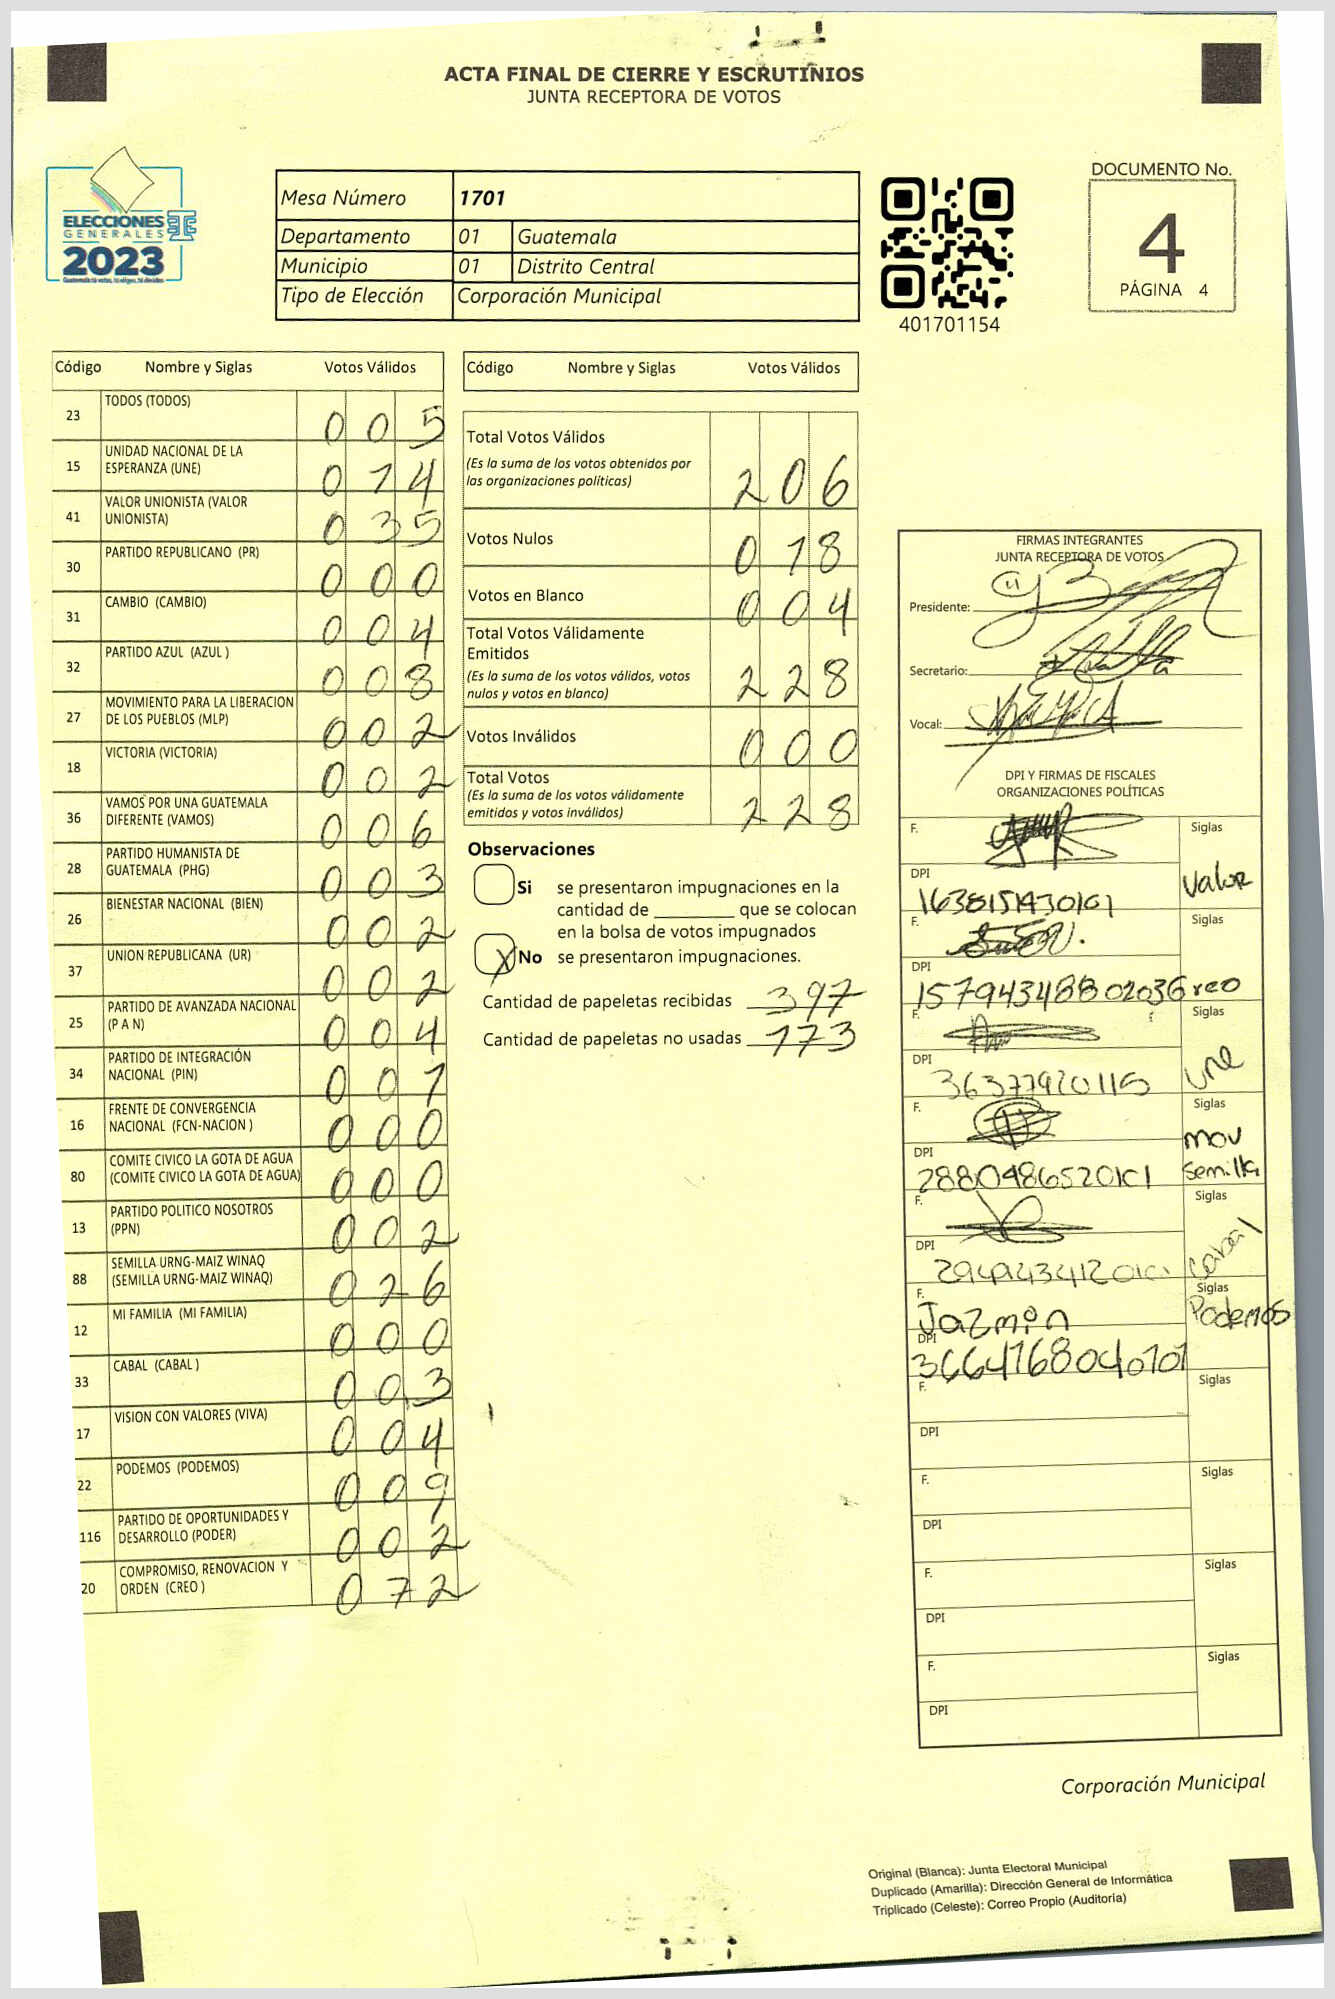 ACTA FINAL DE CIERRE Y ESCRUTINIOS
JUNTA RECEPTORA DE VOTOS
ELECCIONES
GENERALES
2023
Mesa Número 1701
Departamento 01 Guatemala
Municipio 01 Distrito Central
Tipo de Elección Corporación Municipal
401701154
DOCUMENTO No.
4
PÁGINA 4
Código Nombre y Siglas Votos Válidos
23 TODOS (TODOS) 0 0 5
15 UNIDAD NACIONAL DE LA
ESPERANZA (UNE) 0 1 4
41 VALOR UNIONISTA (VALOR
UNIONISTA) 0 3 5
30 PARTIDO REPUBLICANO (PR) 0 0 0
31 CAMBIO (CAMBIO) 0 0 4
32 PARTIDO AZUL (AZUL ) 0 0 8
27 MOVIMIENTO PARA LA LIBERACION
DE LOS PUEBLOS (MLP) 0 0 2
18 VICTORIA (VICTORIA) 0 0 2
36 VAMOS POR UNA GUATEMALA
DIFERENTE (VAMOS) 0 0 6
28 PARTIDO HUMANISTA DE
GUATEMALA (PHG) 0 0 3
26 BIENESTAR NACIONAL (BIEN) 0 0 2
37 UNION REPUBLICANA (UR) 0 0 2
25 PARTIDO DE AVANZADA NACIONAL
(P A N) 0 0 4
34 PARTIDO DE INTEGRACIÓN
NACIONAL (PIN) 0 0 1
16 FRENTE DE CONVERGENCIA
NACIONAL (FCN-NACION ) 0 0 0
80 COMITE CIVICO LA GOTA DE AGUA
(COMITE CIVICO LA GOTA DE AGUA) 0 0 0
13 PARTIDO POLITICO NOSOTROS
(PPN) 0 0 2
88 SEMILLA URNG-MAIZ WINAQ
(SEMILLA URNG-MAIZ WINAQ) 0 2 6
12 MI FAMILIA (MI FAMILIA) 0 0 0
33 CABAL (CABAL ) 0 0 3
17 VISION CON VALORES (VIVA) 0 0 4
22 PODEMOS (PODEMOS) 0 0 9
116 PARTIDO DE OPORTUNIDADES Y
DESARROLLO (PODER) 0 0 2
20 COMPROMISO, RENOVACION Y
ORDEN (CREO ) 0 7 2
Código Nombre y Siglas Votos Válidos
Total Votos Válidos
(Es la suma de los votos obtenidos por
las organizaciones políticas) 2 0 6
Votos Nulos 0 1 8
Votos en Blanco 0 0 4
Total Votos Válidamente
Emitidos
(Es la suma de los votos válidos, votos
nulos y votos en blanco) 2 2 8
Votos Inválidos 0 0 0
Total Votos
(Es la suma de los votos válidamente
emitidos y votos inválidos) 2 2 8
Observaciones
Si se presentaron impugnaciones en la
cantidad de ________ que se colocan
en la bolsa de votos impugnados
X No se presentaron impugnaciones.
Cantidad de papeletas recibidas 397
Cantidad de papeletas no usadas 173
FIRMAS INTEGRANTES
JUNTA RECEPTORA DE VOTOS
Presidente:
Secretario:
Vocal:
DPI Y FIRMAS DE FISCALES
ORGANIZACIONES POLÍTICAS
F. Siglas
DPI Valor
F. Siglas
DPI 1579434880203G reo
F. Siglas
DPI une
36377920115
F. Siglas
mov
DPI semilla
2880486520101
F. Siglas
DPI cabal
F. Jazmin Siglas
Podemos
DPI 3664768040101
F. Siglas
DPI
F. Siglas
DPI
F. Siglas
DPI
F. Siglas
DPI
Corporación Municipal
Original (Blanca): Junta Electoral Municipal
Duplicado (Amarilla): Dirección General de Informática
Triplicado (Celeste): Correo Propio (Auditoría)